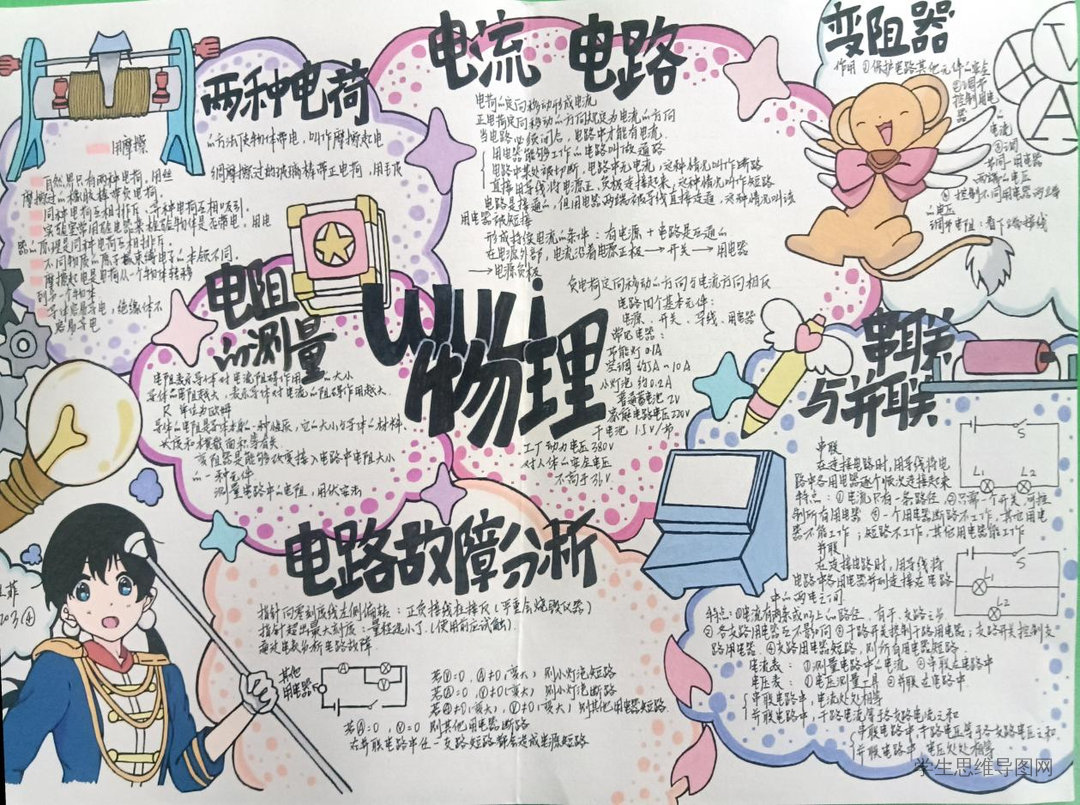 两种电荷
用摩擦
的方法使物体带电,叫作摩擦起电
自然界只有两种电荷,用丝
绸摩擦过的玻璃棒带正电荷,用毛皮
摩擦过的橡胶棒带负电荷。
同种电荷互相排斥,异种电荷互相吸引。
实验室常用验电器来检验物体是否带电,用电
器的原理是同种电荷互相排斥。
不同物质的原子核束缚电子的本领不同。
摩擦起电是电荷从一个物体转移
到另一个物体
导体容易导电,绝缘体不
容易导电
电流 电路
电荷的定向移动形成电流
正电荷定向移动的方向规定为电流的方向
当电路必须闭合,电路中才能有电流.
用电器能够工作的电路叫做通路
电路中某处被切断,电路中无电流,这种情况叫作断路
直接用导线将电源正、负极连接起来,这种情况叫作短路
电路是接通的,但用电器两端被导线直接连通,这种情况叫该
用电器被短接
形成持续电流的条件:有电源+电路是互通的
在电源外部,电流沿着电源正极→开关→用电器
→电源负极
负电荷定向移动的方向与电流方向相反
电路四个基本元件:
电源、开关、导线、用电器
常见电器:
节能灯 0.1A
空调 约5A~10A
小灯泡 约0.2A
普通蓄电池 2V
家庭电路电压220V
干电池 1.5V/节
工厂动力电压380V
对人体的安全电压
不高于36V
变阻器
作用 ①保护电路其他元件的安全
②调节
控制用电
器
的
电流
③调
节同一用电器
两端的电压
④控制不同用电器
的电压
V
A
电阻
的测量
电阻表示导体对电流阻碍作用的大小
导体的电阻越大,表示导体对电流的阻碍作用越大.
R 单位为欧姆
导体的电阻是导体本身的一种性质,它的大小与导体的材料、
长度和横截面积等有关
变阻器是能够改变接入电路中电阻大小
的一种元件
测量电路中的电阻,用伏安法
wuli
物理
串联
与并联
串联
在连接电路时,用导线将电
路中各用电器逐个依次连接起来
特点:①电流只有一条路径 ②只需一个开关,可控
制所有用电器 ③一个用电器断路不工作,其他用电
器不能工作;短路不工作,其他用电器能工作
并联
在连接电路时,用导线将
电路中各用电器并列连接在电路
中的两点之间
特点:①电流有两条或以上的路径,有干、支路之分
②各支路用电器互不影响 ③干路开关控制干路用电器,支路开关控制支
路用电器 ④支路用电器短路,则所有用电器短路.
电流表:①测量电路中的电流 ②串联在电路中
电压表:①测电压的工具 ②并联在电路中
串联电路中,电流处处相等
并联电路中,干路电流等于各支路电流之和
串联电路中干路电压等于各支路电压之和
并联电路中,电压处处相等
S
L1 L2
S
L1
L2
电路故障分析
指针向零刻度线左侧偏转:正负接线柱接反(严重会烧毁仪器)
指针超出最大刻度:量程选小了.(使用前应试触).
通过电表分析电路故障
其他
用电器
A
V
若Ⓥ=0,Ⓐ≠0(变大) 则小灯泡短路
若Ⓐ=0,Ⓥ≠0(变大) 则小灯泡断路
若Ⓐ≠0(变大),Ⓥ≠0(变大) 则其他用电器短路.
若Ⓐ=0,Ⓥ=0 则其他用电器断路
在并联电路中任一支路短路都会造成电源短路
学生思维导图网